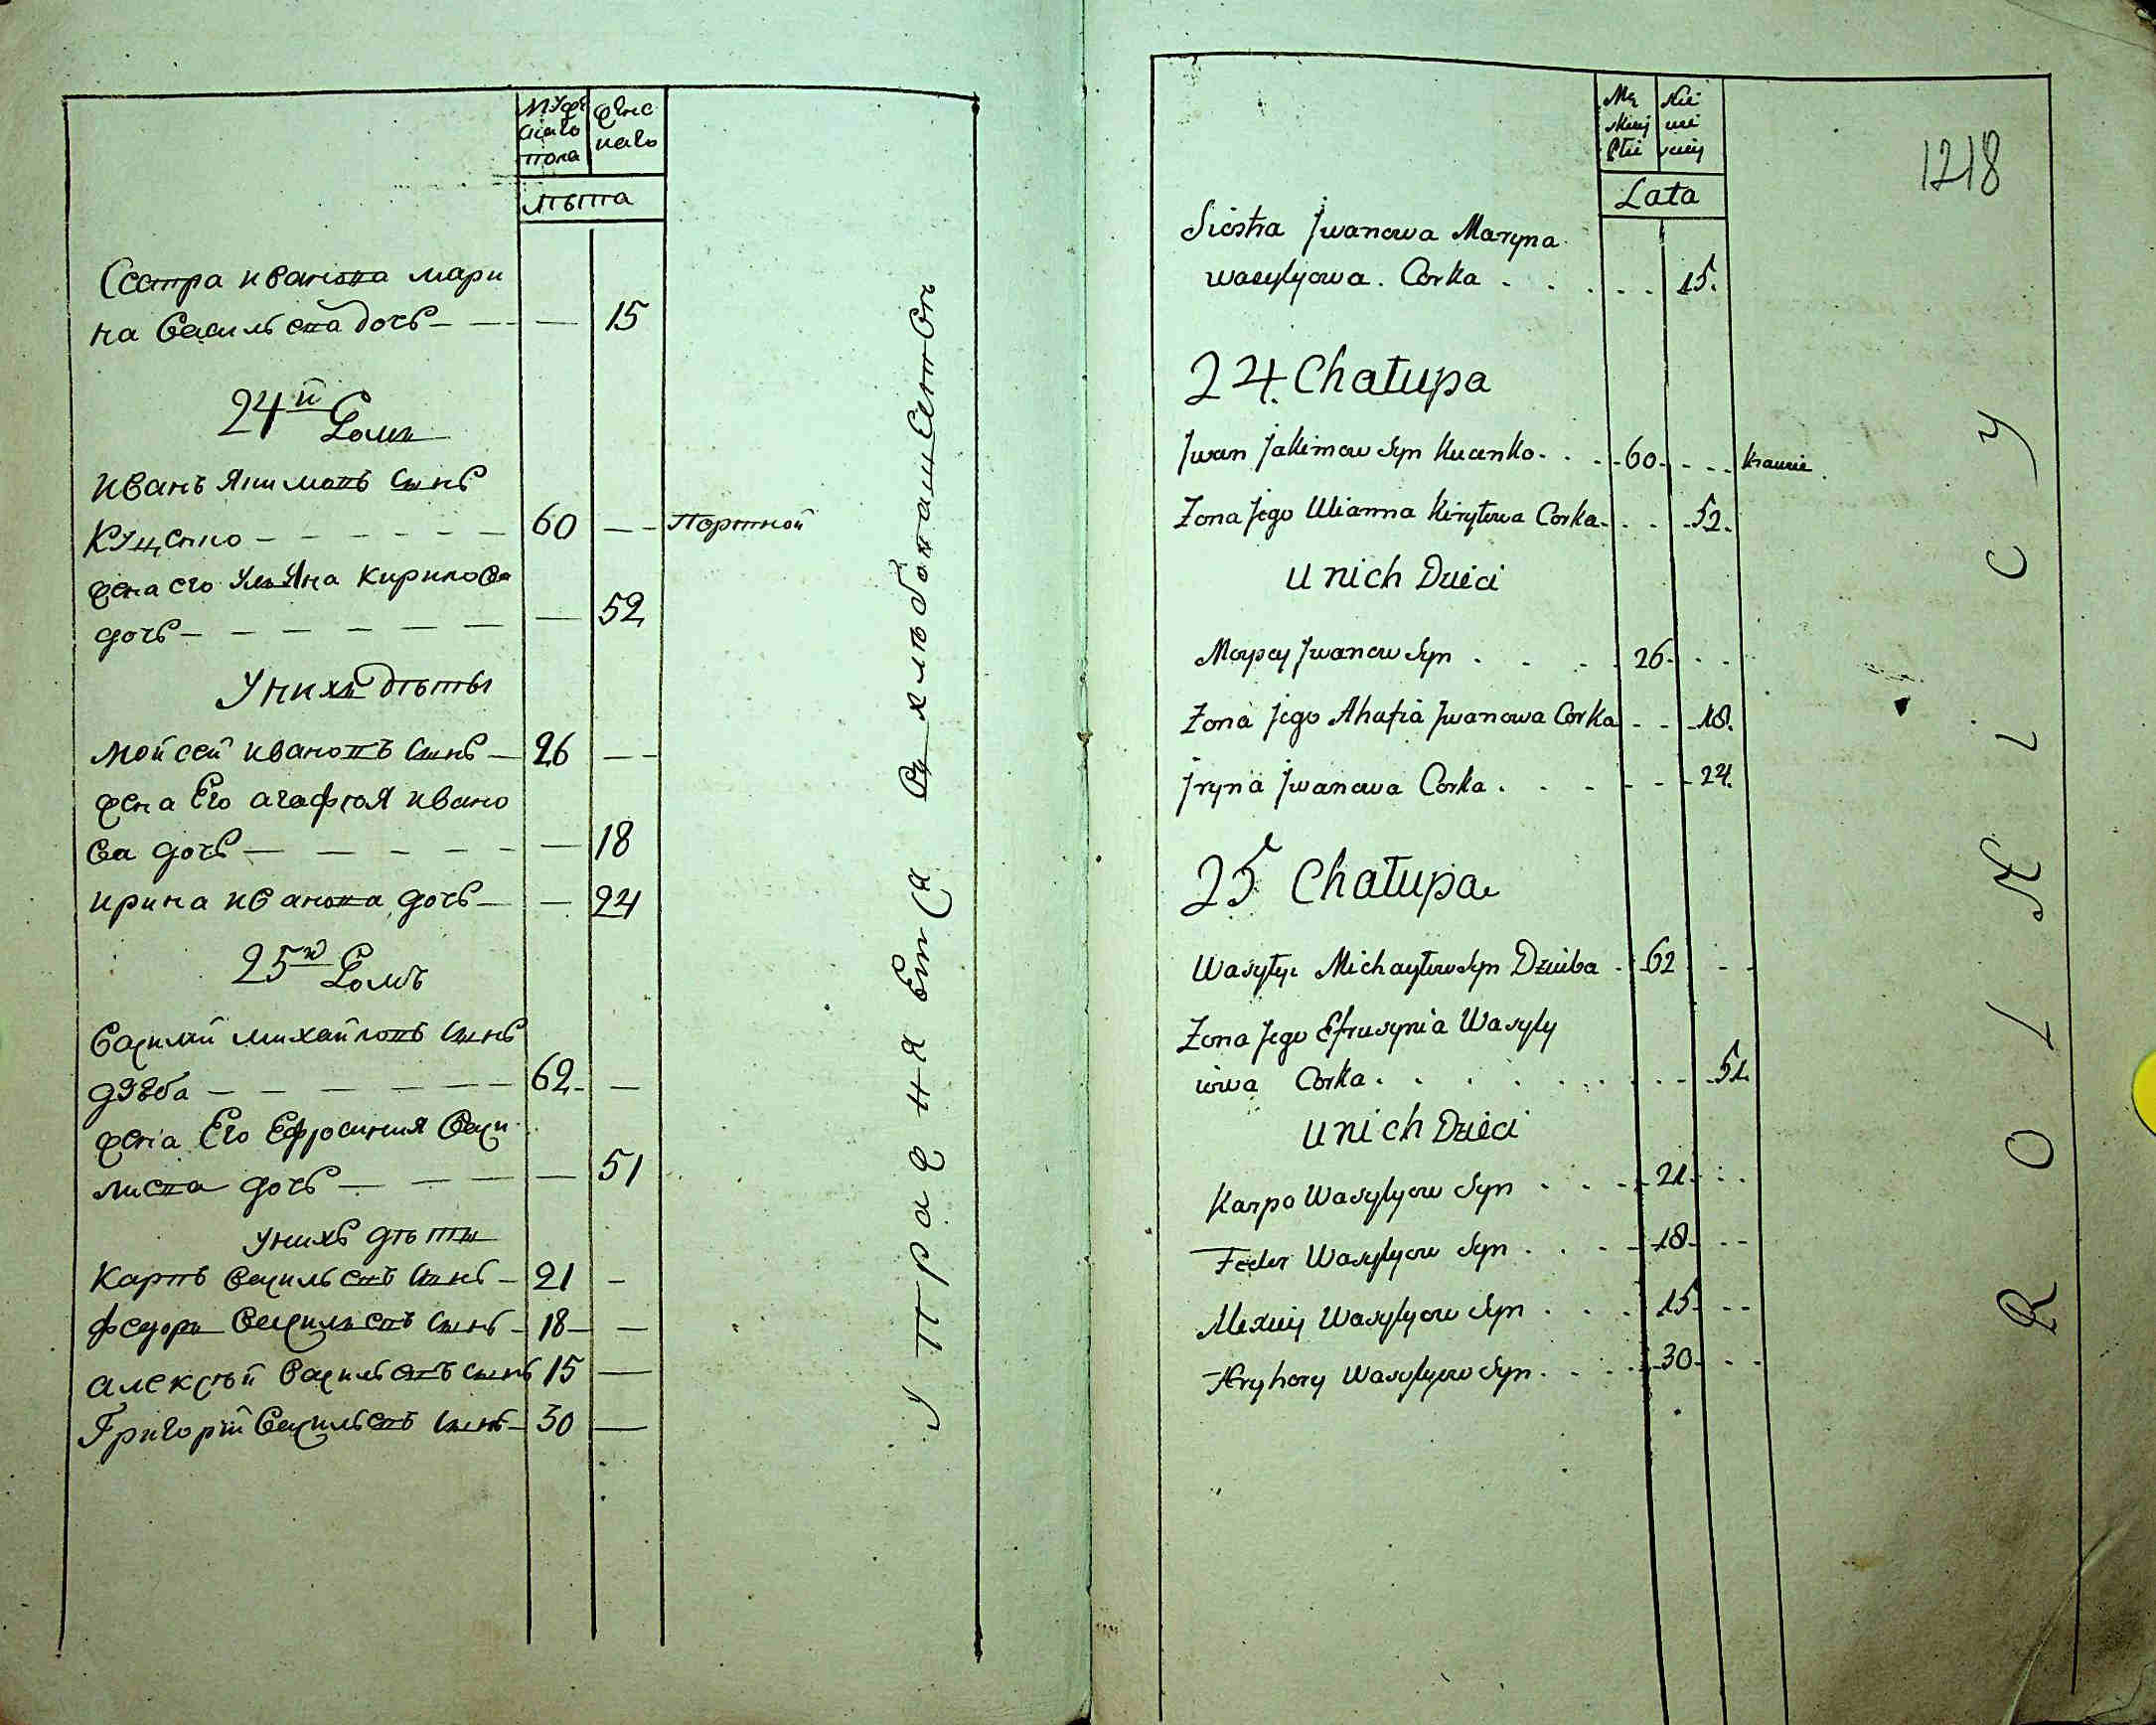 мужескаго пола
женскаго
лѣта
Сестра Иванова Мари
на Васильева дочь 15
24й Домъ
Иванъ Якимовъ сынъ
Куценко 60 Портной
жена его Ульяна Кирилова
дочь 52
У нихъ дѣты
Мойсей Ивановъ сынъ 26
жена Его Агафия Ивано
ва дочь 18
Ирина Иванова дочь 24
25й Домъ
Василий Михайловъ сынъ
Дзюба 62
жена Его Ефросиния Васи
лиева дочь 51
у нихъ дѣти
Карпъ Васильевъ сынъ 21
Федоръ Васильевъ сынъ 18
Алексѣй Васильевъ сынъ 15
Григорій Васильевъ сынъ 30
Упражняется в хлѣбопашествѣ
Męskiej Płci
Niewieściej
Lata
1218
Siostra Jwanowa Maryna
Wasylyowa Corka 15.
24. Chałupa
Jwan Jakimow Syn Kucenko 60 Krawie
Zona Jego Ulianna Kiryłowa Corka 52.
U nich Dzieci
Moysey Jwanow Syn 26
Zona Jego Ahafia Jwanowa Corka 18.
Jryna Jwanowa Corka 24.
25 Chałupa
Wasyłyi Michayłow Syn Dziuba 62
Zona Jego Efrusynia Wasyly
iowa Corka 51.
U nich Dzieci
Karpo Wasylyow Syn 21
Fedor Wasylyow Syn 18
Alexiey Wasylyow Syn 15
Hryhory Wasylyow Syn 30
ROLNICY